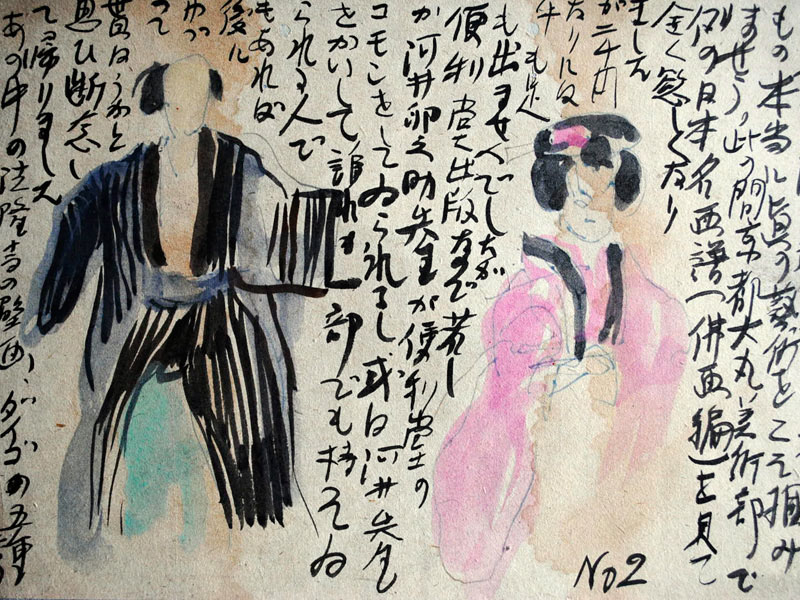 もの本当に真の藝術をこそ掴み
ませう、此の間京都大丸美術部で
何の日本名画譜(佛画編)を見て
全く慾しくなり
ました
が二十円
たりには
牛も足
も出ませんでしたが
便利堂出版なので若し
か河井卯之助先生が便利堂の
コモンをしてゐられるし或は河井先生
をかいして訪れも一部でも持てゐ
られる人で
もあれば
後に
ゆづ
って
貰はうかと
思ひ断念し
て帰りました
あの中の法隆寺の壁画、
の五重
No2